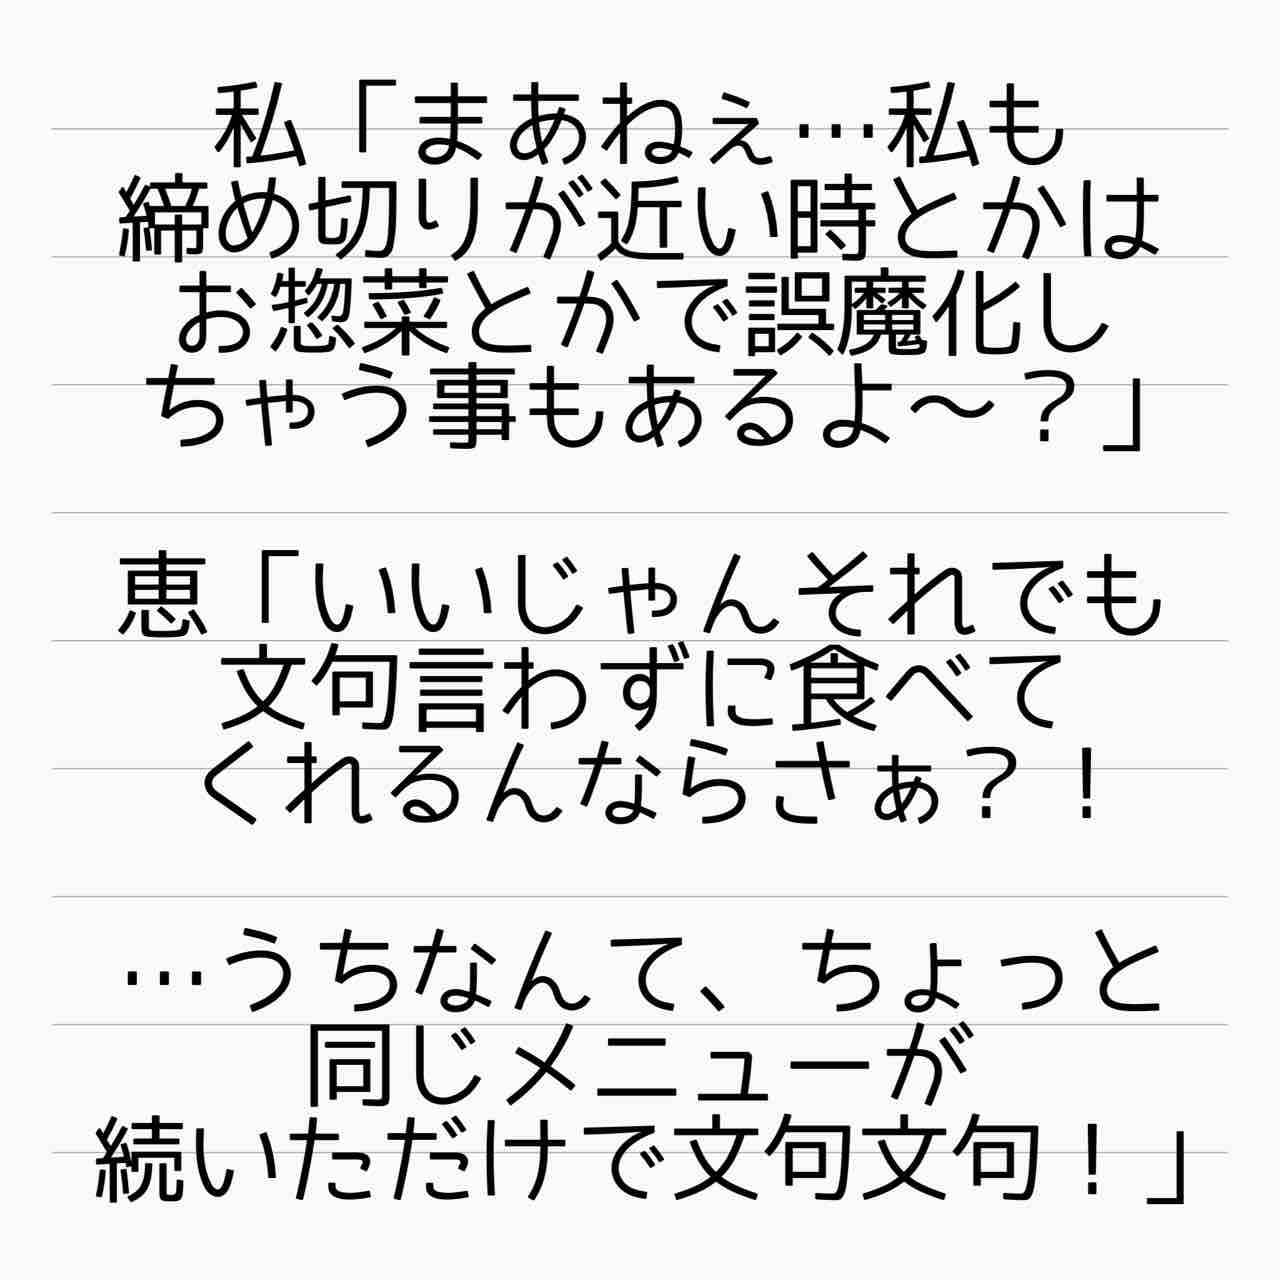 私「まあねぇ…私も
締め切りが近い時とかは
お惣菜とかで誤魔化し
ちゃう事もあるよ〜？」
恵「いいじゃんそれでも
文句言わずに食べて
くれるんならさぁ？！
…うちなんて、ちょっと
同じメニューが
続いただけで文句文句！」